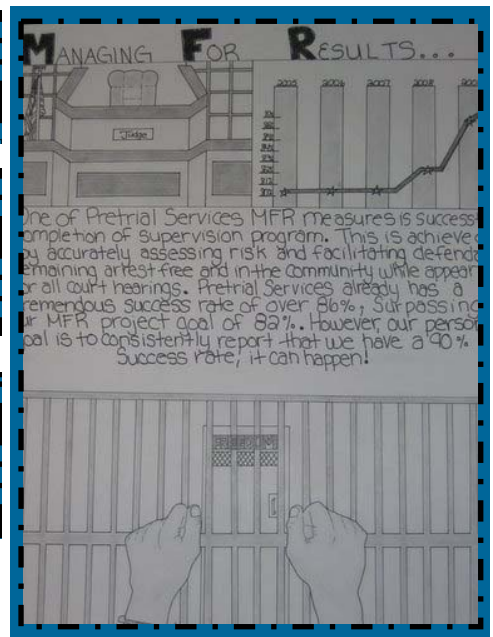 MANAGING FOR RESULTS...
2005 2006 2007 2008 200
Judge
One of Pretrial Services MFR measures is success
ompletion of supervision program. This is achieve
by accurately assessing risk and facilitating defenda
emaining arrest free and in the community while appear
or all court hearings. Pretrial Services already has a
remendous success rate of over 86%, surpassing
ur MFR project goal of 82%. However, our person
oal is to consistently report that we have a 90%
Success rate, it can happen!